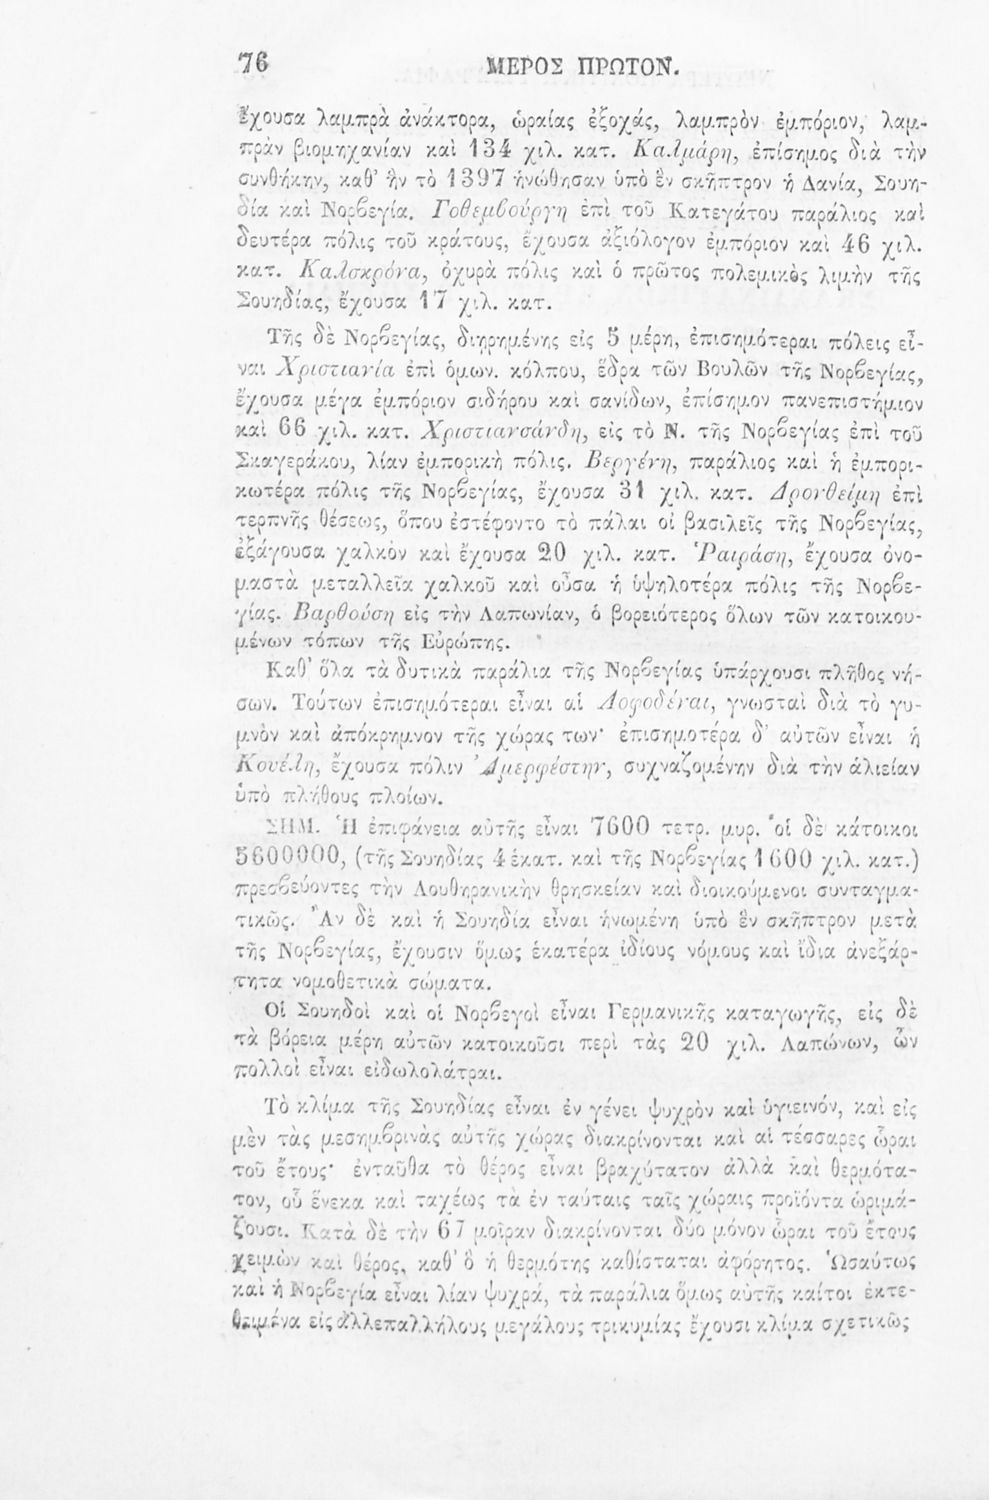 76 ΜΕΡΟΣ ΠΡΩΤΟΝ.
ἔχουσα λαμπρὰ ἀνάκτορα, ὡραίας ἐξοχάς, λαμπρὸν ἐμπόριον, λαμ-
πρὰν βιομηχανίαν καὶ 134 χιλ. κατ. Καλμάρη, ἐπίσημος διὰ τὴν
συνθήκην, καθ’ ἣν τὸ 1397 ἡνώθησαν ὑπὸ ἓν σκῆπτρον ἡ Δανία, Σουη-
δία καὶ Νορβεγία. Γοθεμβούργη ἐπὶ τοῦ Κατεγάτου παράλιος καὶ
δευτέρα πόλις τοῦ κράτους, ἔχουσα ἀξιόλογον ἐμπόριον καὶ 46 χιλ.
κατ. Καλσκρόνα, ὀχυρὰ πόλις καὶ ὁ πρῶτος πολεμικὸς λιμὴν τῆς
Σουηδίας, ἔχουσα 17 χιλ. κατ.
Τῆς δὲ Νορβεγίας, διῃρημένης εἰς 5 μέρη, ἐπισημότεραι πόλεις εἶ-
ναι Χριστιανία ἐπὶ ὁμων. κόλπου, ἕδρα τῶν Βουλῶν τῆς Νορβεγίας,
ἔχουσα μέγα ἐμπόριον σιδήρου καὶ σανίδων, ἐπίσημον πανεπιστήμιον
καὶ 66 χιλ. κατ. Χριστιανσάνδη, εἰς τὸ Ν. τῆς Νορβεγίας ἐπὶ τοῦ
Σκαγεράκου, λίαν ἐμπορικὴ πόλις. Βεργένη, παράλιος καὶ ἡ ἐμπορι-
κωτέρα πόλις τῆς Νορβεγίας, ἔχουσα 31 χιλ. κατ. Δρονθείμη ἐπὶ
τερπνῆς θέσεως, ὅπου ἐστέφοντο τὸ πάλαι οἱ βασιλεῖς τῆς Νορβεγίας,
ἐξάγουσα χαλκὸν καὶ ἔχουσα 20 χιλ. κατ. Ῥαιράση, ἔχουσα ὀνο-
μαστὰ μεταλλεῖα χαλκοῦ καὶ οὖσα ἡ ὑψηλοτέρα πόλις τῆς Νορβε-
γίας. Βαρθούση εἰς τὴν Λαπωνίαν, ὁ βορειότερος ὅλων τῶν κατοικου-
μένων τόπων τῆς Εὐρώπης.
Καθ’ ὅλα τὰ δυτικὰ παράλια τῆς Νορβεγίας ὑπάρχουσι πλῆθος νή-
σων. Τούτων ἐπισημότεραι εἶναι αἱ Λοφοδέναι, γνωσταὶ διὰ τὸ γυ-
μνὸν καὶ ἀπόκρημνον τῆς χώρας των· ἐπισημοτέρα δ’ αὐτῶν εἶναι ἡ
Κουέλη, ἔχουσα πόλιν Ἀμερφέστην, συχναζομένην διὰ τὴν ἁλιείαν
ὑπὸ πλήθους πλοίων.
ΣΗΜ. Ἡ ἐπιφάνεια αὐτῆς εἶναι 7600 τετρ. μυρ. οἱ δὲ κάτοικοι
5600000, (τῆς Σουηδίας 4 ἑκατ. καὶ τῆς Νορβεγίας 1600 χιλ. κατ.)
πρεσβεύοντες τὴν Λουθηρανικὴν θρησκείαν καὶ διοικούμενοι συνταγμα-
τικῶς. Ἂν δὲ καὶ ἡ Σουηδία εἶναι ἡνωμένη ὑπὸ ἓν σκῆπτρον μετὰ
τῆς Νορβεγίας, ἔχουσιν ὅμως ἑκατέρα ἰδίους νόμους καὶ ἴδια ἀνεξάρ-
τητα νομοθετικὰ σώματα.
Οἱ Σουηδοὶ καὶ οἱ Νορβεγοὶ εἶναι Γερμανικῆς καταγωγῆς, εἰς δὲ
τὰ βόρεια μέρη αὐτῶν κατοικοῦσι περὶ τὰς 20 χιλ. Λαπώνων, ὧν
πολλοὶ εἶναι εἰδωλολάτραι.
Τὸ κλίμα τῆς Σουηδίας εἶναι ἐν γένει ψυχρὸν καὶ ὑγιεινόν, καὶ εἰς
μὲν τὰς μεσημβρινὰς αὐτῆς χώρας διακρίνονται καὶ αἱ τέσσαρες ὧραι
τοῦ ἔτους· ἐνταῦθα τὸ θέρος εἶναι βραχύτατον ἀλλὰ καὶ θερμότα-
τον, οὗ ἕνεκα καὶ ταχέως τὰ ἐν ταύταις ταῖς χώραις προϊόντα ὡριμά-
ζουσι. Κατὰ δὲ τὴν 67 μοῖραν διακρίνονται δύο μόνον ὧραι τοῦ ἔτους
χειμὼν καὶ θέρος, καθ’ ὃ ἡ θερμότης καθίσταται ἀφόρητος. Ὡσαύτως
καὶ ἡ Νορβεγία εἶναι λίαν ψυχρά, τὰ παράλια ὅμως αὐτῆς καίτοι ἐκτε-
θειμένα εἰς ἀλλεπαλλήλους μεγάλους τρικυμίας ἔχουσι κλίμα σχετικῶς